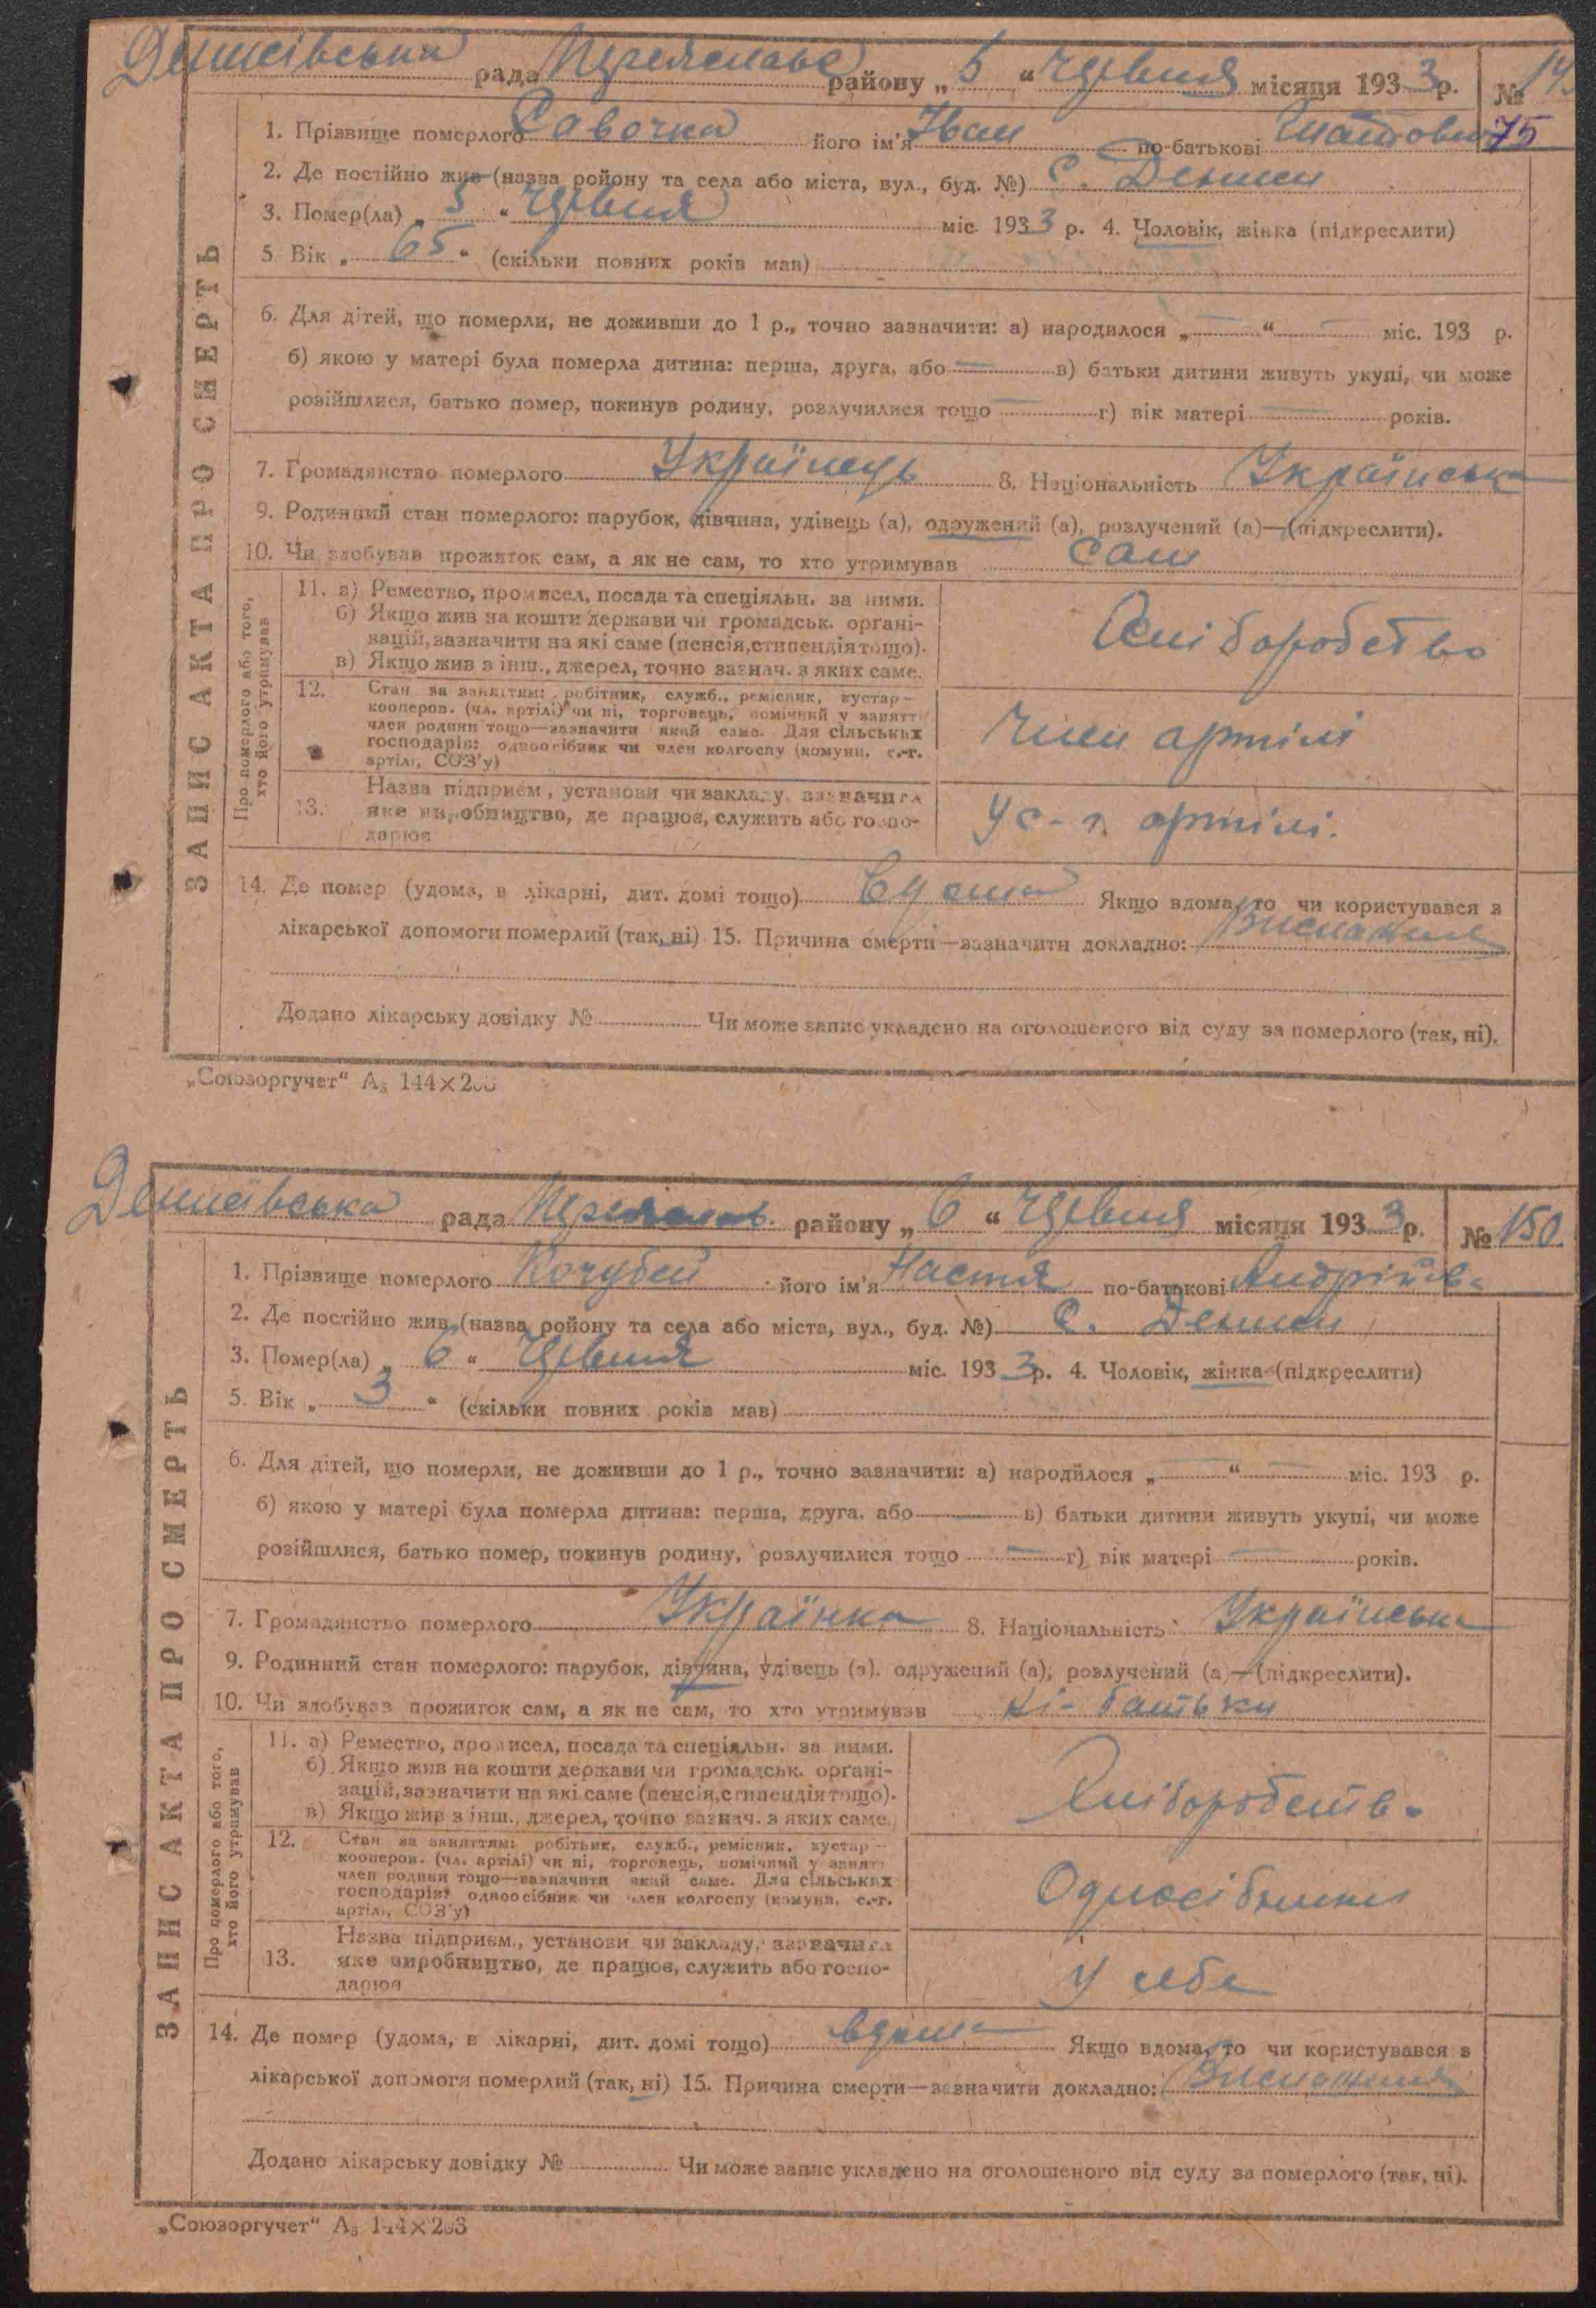 Денисівська рада Переяславс району „ 5 “ Червня місяця 193 3 р. № 14
75
1. Прізвище померлого Савочка його ім'я Іван по-батькові
2. Де постійно жив (назва ройону та села або міста, вул., буд. №) с. Дениси
3. Помер(ла) „ 5 “ Червня міс. 193 3 р. 4. Чоловік, жінка (підкреслити)
5 Вік „ 65 “ (скільки повних років мав)
6. Для дітей, що померли, не доживши до 1 р., точно зазначити: а) народилося „ — “ — міс. 193 р.
б) якою у матері була померла дитина: перша, друга, або — в) батьки дитини живуть укупі, чи може
розійшлися, батько помер, покинув родину, розлучилися тощо — г) вік матері — років.
7. Громадянство померлого Українець 8. Національність Українська
9. Родинний стан померлого: парубок, дівчина, удівець (а), одружений (а), розлучений (а)—(підкреслити).
10. Чи здобував прожиток сам, а як не сам, то хто утримував сам
ЗАПИС АКТА ПРО СМЕРТЬ
Про померлого або того, хто його утримував
11. а) Ремество, промисел, посада та спеціяльн. за ними.
б) Якщо жив на кошти держави чи громадськ. органі-
зацій, зазначити на які саме (пенсія, стипендія тощо).
в) Якщо жив з інш., джерел, точно зазнач. з яких саме.
Хліборобство
12. Стан за заняттям: робітник, служб., ремісник, кустар—
кооперов. (чл. артілі) чи ні, торговець, помічний у занятті
член родини тощо—зазначити який саме. Для сільських
господарів: одноосібник чи член колгоспу (комуни, с.-г.
артілі, СОЗ'у)
Член артілі
13. Назва підприєм., установи чи закладу, зазначити
яке виробництво, де працює, служить або госпо-
дарює
У с-г. артілі.
14. Де помер (удома, в лікарні, дит. домі тощо) Вдома Якщо вдома, то чи користувався з
лікарської допомоги померлий (так, ні) 15. Причина смерти—зазначити докладно: Виснаження
Додано лікарську довідку № Чи може запис укладено на оголошеного від суду за померлого (так, ні).
„Союзоргучет“ А₅ 144×203
Денисівська рада Переяслав. району „ 6 “ Червня місяця 193 3 р. № 150
1. Прізвище померлого Кочубей його ім'я Настя по-батькові Андріївна
2. Де постійно жив (назва ройону та села або міста, вул., буд. №) с. Дениси
3. Помер(ла) „ 6 “ Червня міс. 193 3 р. 4. Чоловік, жінка (підкреслити)
5. Вік „ 3 “ (скільки повних років мав)
6. Для дітей, що померли, не доживши до 1 р., точно зазначити: а) народилося „ — “ — міс. 193 р.
б) якою у матері була померла дитина: перша, друга, або — в) батьки дитини живуть укупі, чи може
розійшлися, батько помер, покинув родину, розлучилися тощо — г) вік матері — років.
7. Громадянство померлого Українка 8. Національність Українська
9. Родинний стан померлого: парубок, дівчина, удівець (а), одружений (а), розлучений (а)—(підкреслити).
10. Чи здобував прожиток сам, а як не сам, то хто утримував ні- батьки
ЗАПИС АКТА ПРО СМЕРТЬ
Про померлого або того, хто його утримував
11. а) Ремество, промисел, посада та спеціяльн. за ними.
б) Якщо жив на кошти держави чи громадськ. органі-
зацій, зазначити на які саме (пенсія, стипендія тощо).
в) Якщо жив з інш., джерел, точно зазнач. з яких саме.
Хліборобство
12. Стан за заняттям: робітник, служб., ремісник, кустар—
кооперов. (чл. артілі) чи ні, торговець, помічний у занятті
член родини тощо—зазначити який саме. Для сільських
господарів: одноосібник чи член колгоспу (комуни, с.-г.
артілі, СОЗ'у)
Односібники
13. Назва підприєм., установи чи закладу, зазначити
яке виробництво, де працює, служить або госпо-
дарює
У себе
14. Де помер (удома, в лікарні, дит. домі тощо) вдома Якщо вдома, то чи користувався з
лікарської допомоги померлий (так, ні) 15. Причина смерти—зазначити докладно: Виснаження
Додано лікарську довідку № Чи може запис укладено на оголошеного від суду за померлого (так, ні).
„Союзоргучет“ А₅ 144×203